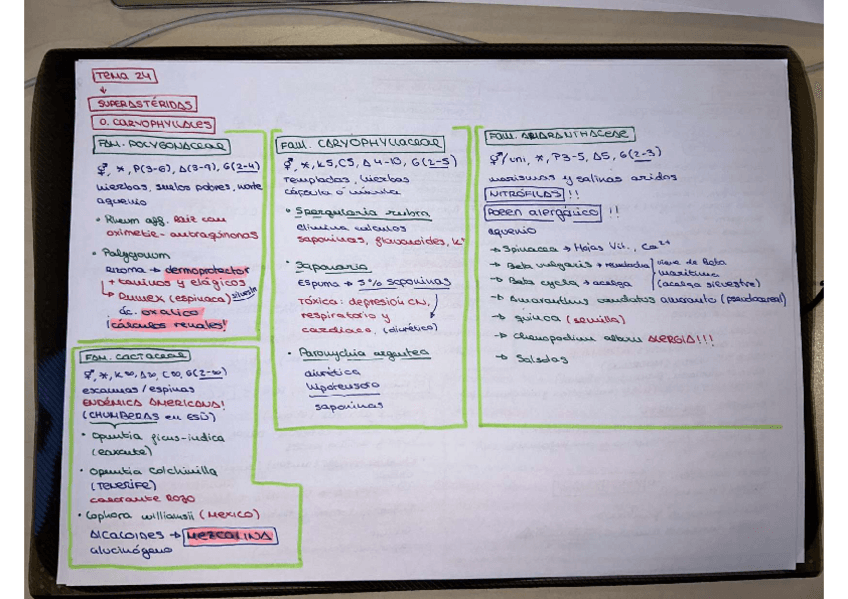 TEMA 24
↓
SUPERASTÉRIDAS
O. CARYOPHYLLALES
FAM. POLYGONACEAE
⚥, *, P(3-6), A(3-9), G(2-4)
hierbas, suelos pobres, norte
aquenio
• Rheum aff. Raíz con
oximetil- antraquinonas
• Polygonum
rizoma → dermoprotector
+ taninos y elágicos
↳ Rumex (espinaca) silvestre
ác. oxálico
¡cálculos renales!
FAM. CACTACEAE
⚥, *, K∞, A∞, C∞, G(2-∞)
escamas / espinas
ENDÉMICA AMERICANA!
(CHUMBERAS en ESÜ)
• Opuntia ficus-indica
• Opuntia Colchinilla
(TENERIFE)
colorante ROJO
• Lophora williamsii (MÉXICO)
ALCALOIDES → MEZCALINA
alucinógeno
FAM. CARYOPHYLLACEAE
⚥, *, K5, C5, A 4-10, G(2-5)
Templadas, hierbas
• Spergularia rubra
elimina cálculos
saponinas, flavonoides, K⁺
• Saponaria
Espuma → 5% saponinas
TÓXICA: depresión CN,
respiratorio y
cardíaco. (diurético)
• Paronychia argentea
diurética
hipotensora
saponinas
FAM. AMARANTHACEAE
⚥/uni, *, P3-5, A5, G(2-3)
marismas y salinas áridos
NITRÓFILAS !!
Polen alergénico !!
aquenio
→ Spinacea → Hojas Vit., Ca²⁺
→ Beta vulgaris → remolacha viene de Beta
maritima
→ Beta cycla → acelga (acelga silvestre)
→ Amaranthus caudatus amaranto (pseudocereal)
→ Quinoa (semilla)
→ Chenopodium album ALERGIA!!!
→ Salsolas